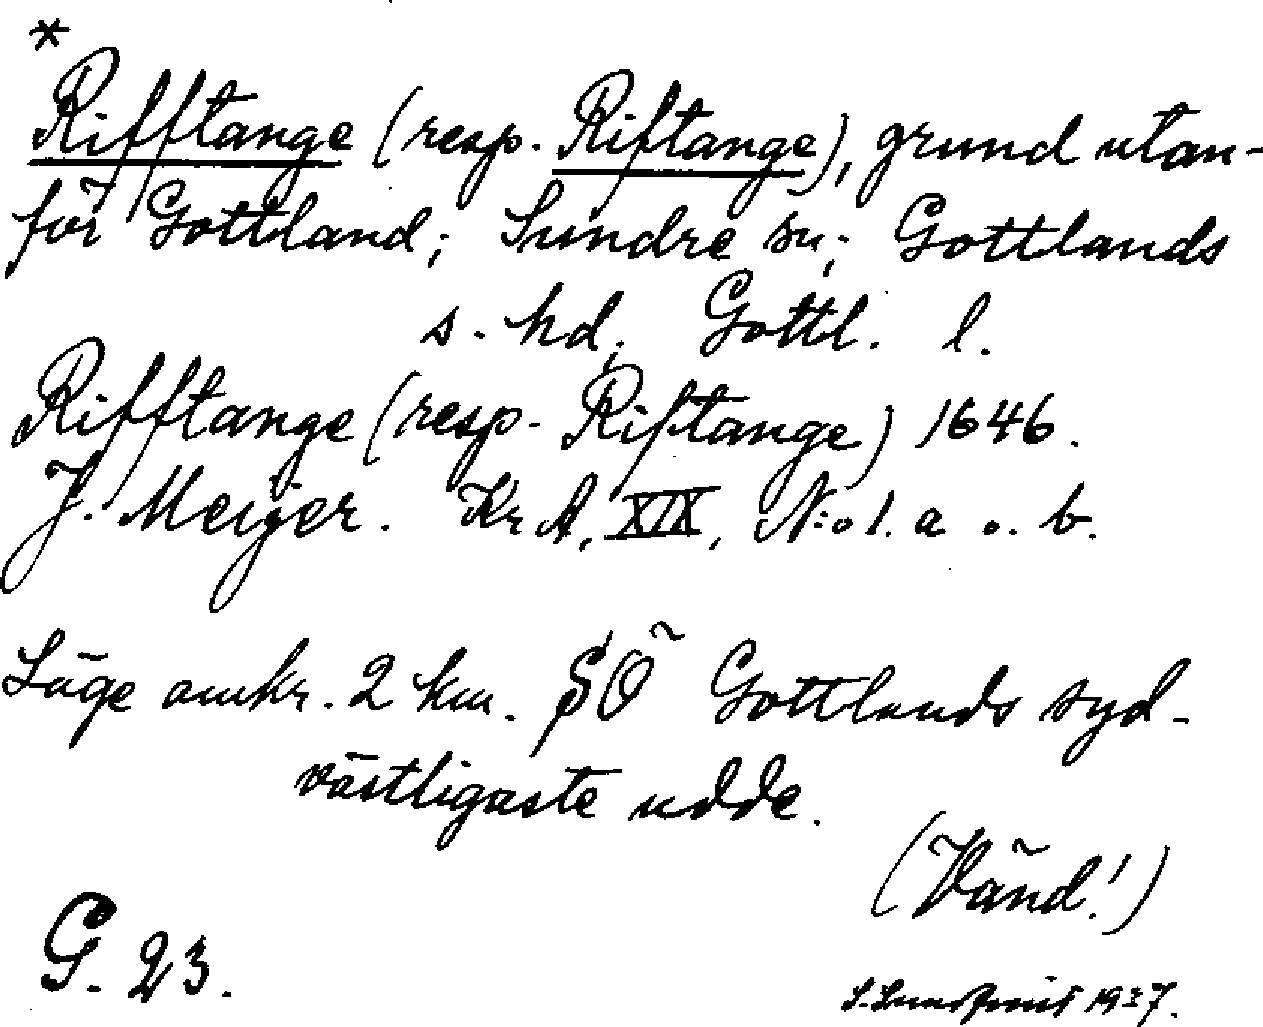 *
Rifftange (resp. Riftange), grund utan-
för Gottland; Sundre sn; Gottlands
s. hd, Gottl. l.
Rifftange (resp. Riftange) 1646.
J. Meijer. Kr A, XIX, N:o 1. a o. b.
Läge omkr. 2 km. SÖ Gottlands syd-
västligaste udde.
(Vänd!)
G. 23.
1937.